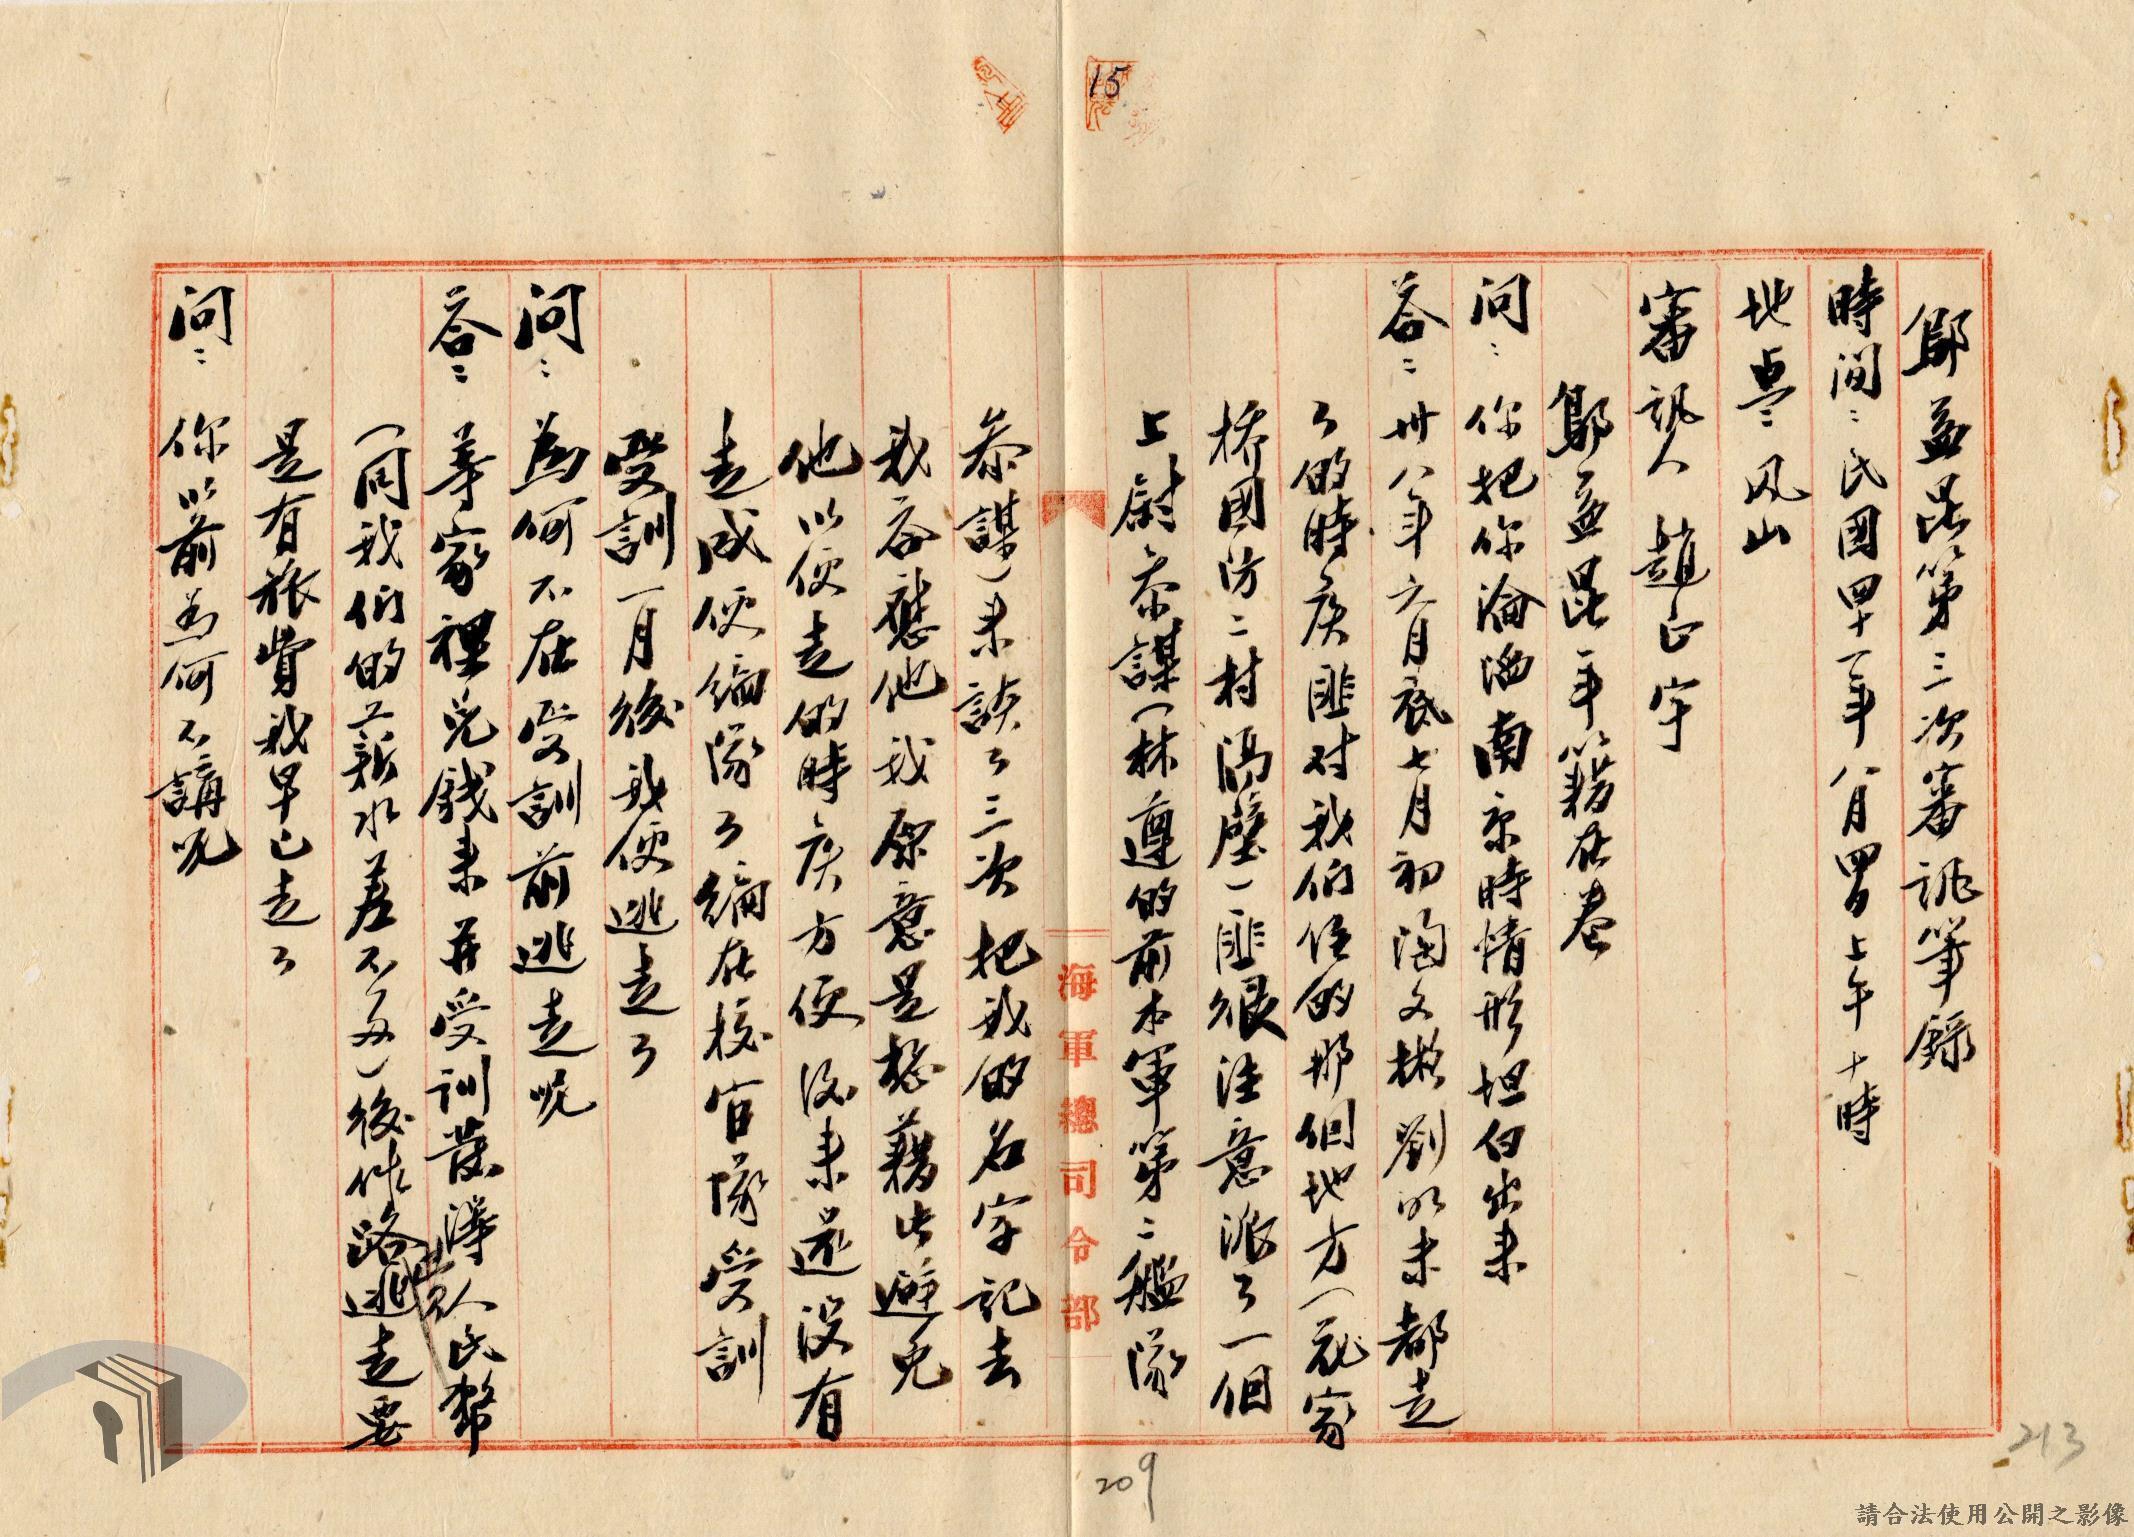 15
鄔孟昆第三次審訊筆錄
時间：民國四十一年八月四日上午十時
地點：风山
審訊人 趙正宇
鄔孟昆 年籍在卷
问：你把你淪陷南京時情形坦白出来
答：卅八年六月底七月初陶文樾劉以未都走
了的時候匪对我们住的那個地方（我家
橋國防二村隔壁）匪很注意派了一個
上尉参謀（林遵的前本軍第二艦隊
参謀）来談了三次把我的名字記去
我答應他我原意是想藉此避免
他以便走的時候方便後来還没有
走成便编隊了编在校官隊受訓
受訓一月後我便逃走了
问：為何不在受訓前逃走呢
答：等家裡兑錢来并受訓發薄人民幣
（同我们的薪水差不多）後作路費逃走要
是有旅費我早已走了
问：你以前為何不講呢
海軍總司令部
209
213
請合法使用公開之影像